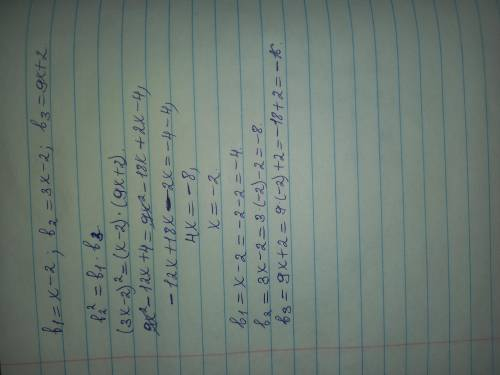 b₁ = x - 2; b₂ = 3x - 2; b₃ = 9x + 2
b₂² = b₁ · b₃
(3x - 2)² = (x - 2) · (9x + 2).
9x² - 12x + 4 = 9x² - 18x + 2x - 4;
-12x + 18x - 2x = -4 - 4;
4x = -8;
x = -2.
b₁ = x - 2 = -2 - 2 = -4.
b₂ = 3x - 2 = 3(-2) - 2 = -8.
b₃ = 9x + 2 = 9(-2) + 2 = -18 + 2 = -16.